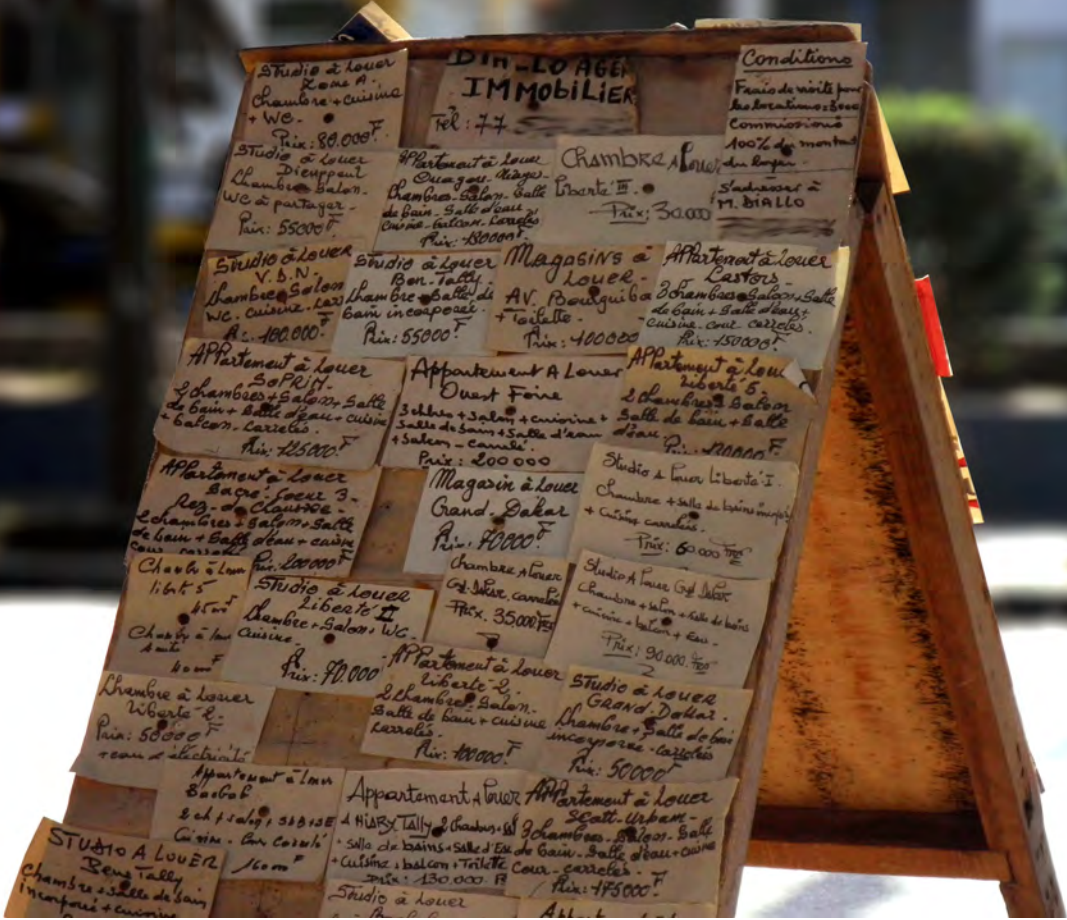 Studio à Louer
Zone A.
Chambre + cuisine
+ WC.
Prix: 80.000 F
IMMOBILIER
Tél: 77
Conditions
Frais de visite pour
les locations:
Commissions
100% du montant
du loyer.
S'adresser à
M. DIALLO
Studio à Louer
Dieuppeul
Chambre Salon-
WC à partager-
Prix: 55000 F
Appartement à Louer
Ouagou-Niaye
Chambres-Salon-Salle
de bain-Salle d'eau-
cuisine-balcon-carrelés
Prix: 180000 F.
Chambre A Louer
Liberté III.
Prix: 30.000
Studio à Louer
V.D.N.
Chambre Salon
WC. cuisine.
100.000 F
Studio à Louer
Ben-Tally
Chambre Salle de
bain incorporée.
Prix: 55000 F
Magasins à
Louer-
AV. Bourguiba
+ Toilette.
Prix: 400000
Appartement à Louer
Castors-
3 chambres Salon + Salle
de bain + Salle d'eau +
cuisine-cour carrelés.
Prix: 150000 F
Appartement à Louer
SOPRIM-
2 chambres + Salon + Salle
de bain + Salle d'eau + cuisine
+ balcon-carrelés.
Prix: 125000 F
Appartement A Louer
Ouest Foire
3 chbres + salon + cuisine +
Salle de bain + Salle d'eau
+ balcon - carrelé.
Prix: 200 000
Appartement à Lou
Liberté 5.
2 chambres Salon
Salle de bain + Salle
d'eau.
Appartement à Louer
Sacré-Coeur 3-
Rez-de Chaussée-
2 chambres + Salon + Salle
de bain + Salle d'eau + cuisine
cour carrelés
Prix: 200000 F
Magasin à Louer
Grand-Dakar
Prix: 70000 F
Studio A Louer Liberté I.
Chambre + salle de bains
+ Cuisine carrelés.
Prix: 60.000
Chambre à Louer
liberté 5
45 m F
40 m F
Studio à Louer
Liberté II
Chambre + Salon + WC-
cuisine-
Prix: 70.000 F
Chambre A Louer
Gd. Dakar, carrelée
Prix. 35.000
Studio A Louer Gd Dakar
Chambre + salon + salle de bains
+ cuisine + balcon + Eau.
Prix: 90.000
Chambre à Louer
Liberté-2-
Prix: 50000 F
+ eau + électricité
Appartement à Louer
Liberté-2-
2 chambres Salon-
Salle de bain + cuisine
carrelés-
Prix: 100000 F
Studio à Louer
GRAND. Dakar.
Chambre + Salle de bain
incorporée - carrelés
Prix: 50000 F
Appartement à Louer
Baobab
2 ch + salon + SDB + SE
Cuisine - Cour Carrelé
160 m
Appartement A Louer
A HLARY TALLY 2 Chambres +
+ salle de bains + salle d'Eau
+ Cuisine + balcon + Toilette
Prix: 130.000 F
Appartement à Louer
Scatt-Urbam-
3 chambres-Salon-Salle
de bain-Salle d'eau + cuisine
Cour-carrelés-
Prix: 175000 F.
STUDIO A LOUER
Bene Tally
Chambre + Salle de bain
incorporée + cuisine
Studio à Louer